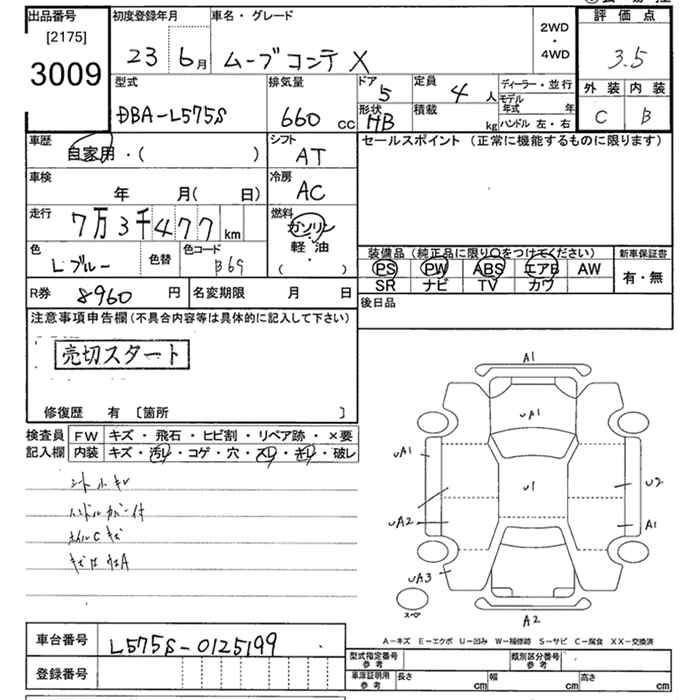 出品番号 初度登録年月 車名・グレード 評価点
[2175]
3009
23 6月 ムーブコンテ X 2WD・4WD 3.5
型式 排気量 ドア 定員 ディーラー・並行 外装 内装
DBA-L575S 660 cc 5 4人 モデル年式 年 C B
形状 HB 積載 kg ハンドル 左・右
車歴 シフト セールスポイント (正常に機能するものに限ります)
自家用・( ) AT
車検 冷房
年 月( 日) AC
走行 燃料
7万3千477km ガソリン
軽・油
( )
色 色替 色コード 装備品(純正品に限り〇をつけてください) 新車保証書
Lブルー B69 PS PW ABS エアB AW 有・無
SR ナビ TV カワ
R券 8960円 名変期限 月 日 後日品
注意事項申告欄(不具合内容等は具体的に記入して下さい)
売切スタート
修復歴 有 [箇所 ]
検査員 FW キズ・飛石・ヒビ割・リペア跡・×要
記入欄 内装 キズ・汚レ・コゲ・穴・スレ・キレ・破レ
ハンドルカバー付
ホイルCキズ
A1
uA1
uA1
u1
U2
uA2
A1
uA3
スペア
A2
A-キズ E-エクボ U-凹み W-補修跡 S-サビ C-腐食 XX-交換済
車台番号 L575S-0125199
型式指定番号 参考 類別区分番号 参考
登録番号
車庫証明用 参考 長さ cm 幅 cm 高さ cm